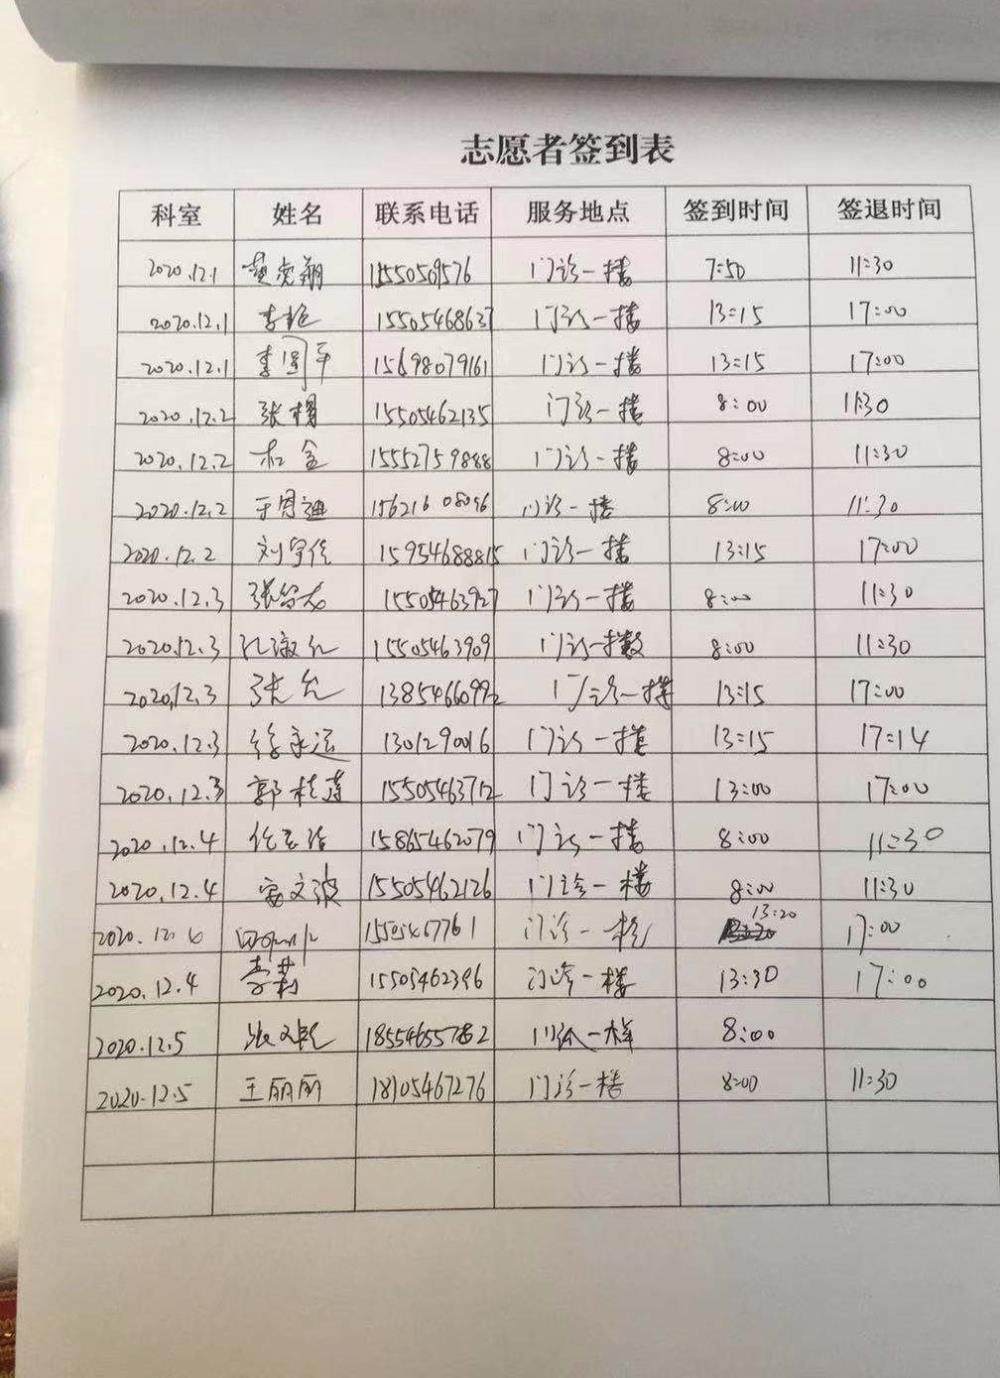 志愿者签到表
科室 姓名 联系电话 服务地点 签到时间 签退时间
2020.12.1 黄亮翔 1555059576 门诊一楼 7:50 11:30
2020.12.1 李艳 15505468637 门诊一楼 13:15 17:00
2020.12.1 李国平 15698079161 门诊一楼 13:15 17:00
2020.12.2 张楠 15505462135 门诊一楼 8:00 11:30
2020.12.2 15552759888 门诊一楼 8:00 11:30
2020.12.2 15621608096 门诊一楼 8:00 11:30
2020.12.2 刘 15954688815 门诊一楼 13:15 17:00
2020.12.3 张 15505463927 门诊一楼 8:00 11:30
2020.12.3 孔 15505463909 门诊一楼 8:00 11:30
2020.12.3 张 13854660992 门诊一楼 13:15 17:00
2020.12.3 徐永运 1301290016 门诊一楼 13:15 17:14
2020.12.3 郭桂莲 15505463712 门诊一楼 13:00 17:00
2020.12.4 任 15865462079 门诊一楼 8:00 11:30
2020.12.4 文波 15505462126 门诊一楼 8:00 11:30
门诊一楼 13:20 17:00
2020.12.4 李莉 15505462396 门诊一楼 13:30 17:00
2020.12.5 张 门诊一楼 8:00
2020.12.5 王丽丽 18105467276 门诊一楼 8:00 11:30